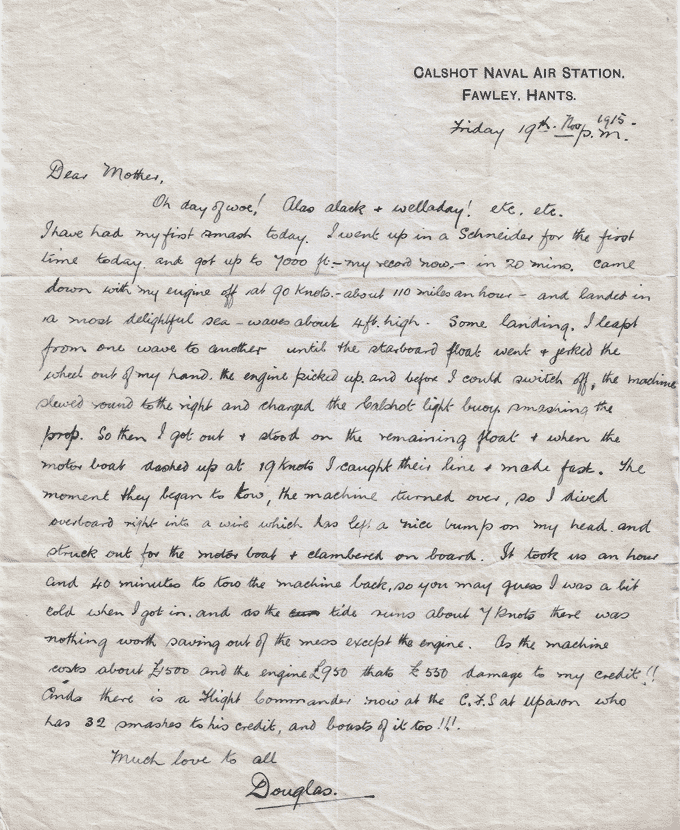 CALSHOT NAVAL AIR STATION,
FAWLEY, HANTS.
Friday 19th. Nov 1915. p.m.
Dear Mother,
Oh day of woe! Alas alack + welladay! etc. etc.
I have had my first smash today. I went up in a Schneider for the first
time today. and got up to 7000 ft.- my record now.- in 20 mins. came
down with my engine off at 90 knots.- about 110 miles an hour - and landed in
a most delightful sea - waves about 4 ft. high. Some landing. I leapt
from one wave to another until the starboard float went + jerked the
wheel out of my hand. the engine picked up. and before I could switch off, the machine
slewed round to the right and charged the Calshot light buoy smashing the
prop. So then I got out + stood on the remaining float + when the
motor boat dashed up at 19 knots I caught their line + made fast. The
moment they began to tow, the machine turned over, so I dived
overboard right into a wire which has left a nice bump on my head. and
struck out for the motor boat + clambered on board. It took us an hour
and 40 minutes to tow the machine back, so you may guess I was a bit
cold when I got in. and as the tide runs about 7 knots there was
nothing worth saving out of the mess except the engine. As the machine
costs about £1500 and the engine £950 thats £550 damage to my credit!!
Ands there is a Flight Commander now at the C.F.S at Upavon who
has 32 smashes to his credit, and boasts of it too!!!.
Much love to all
Douglas.